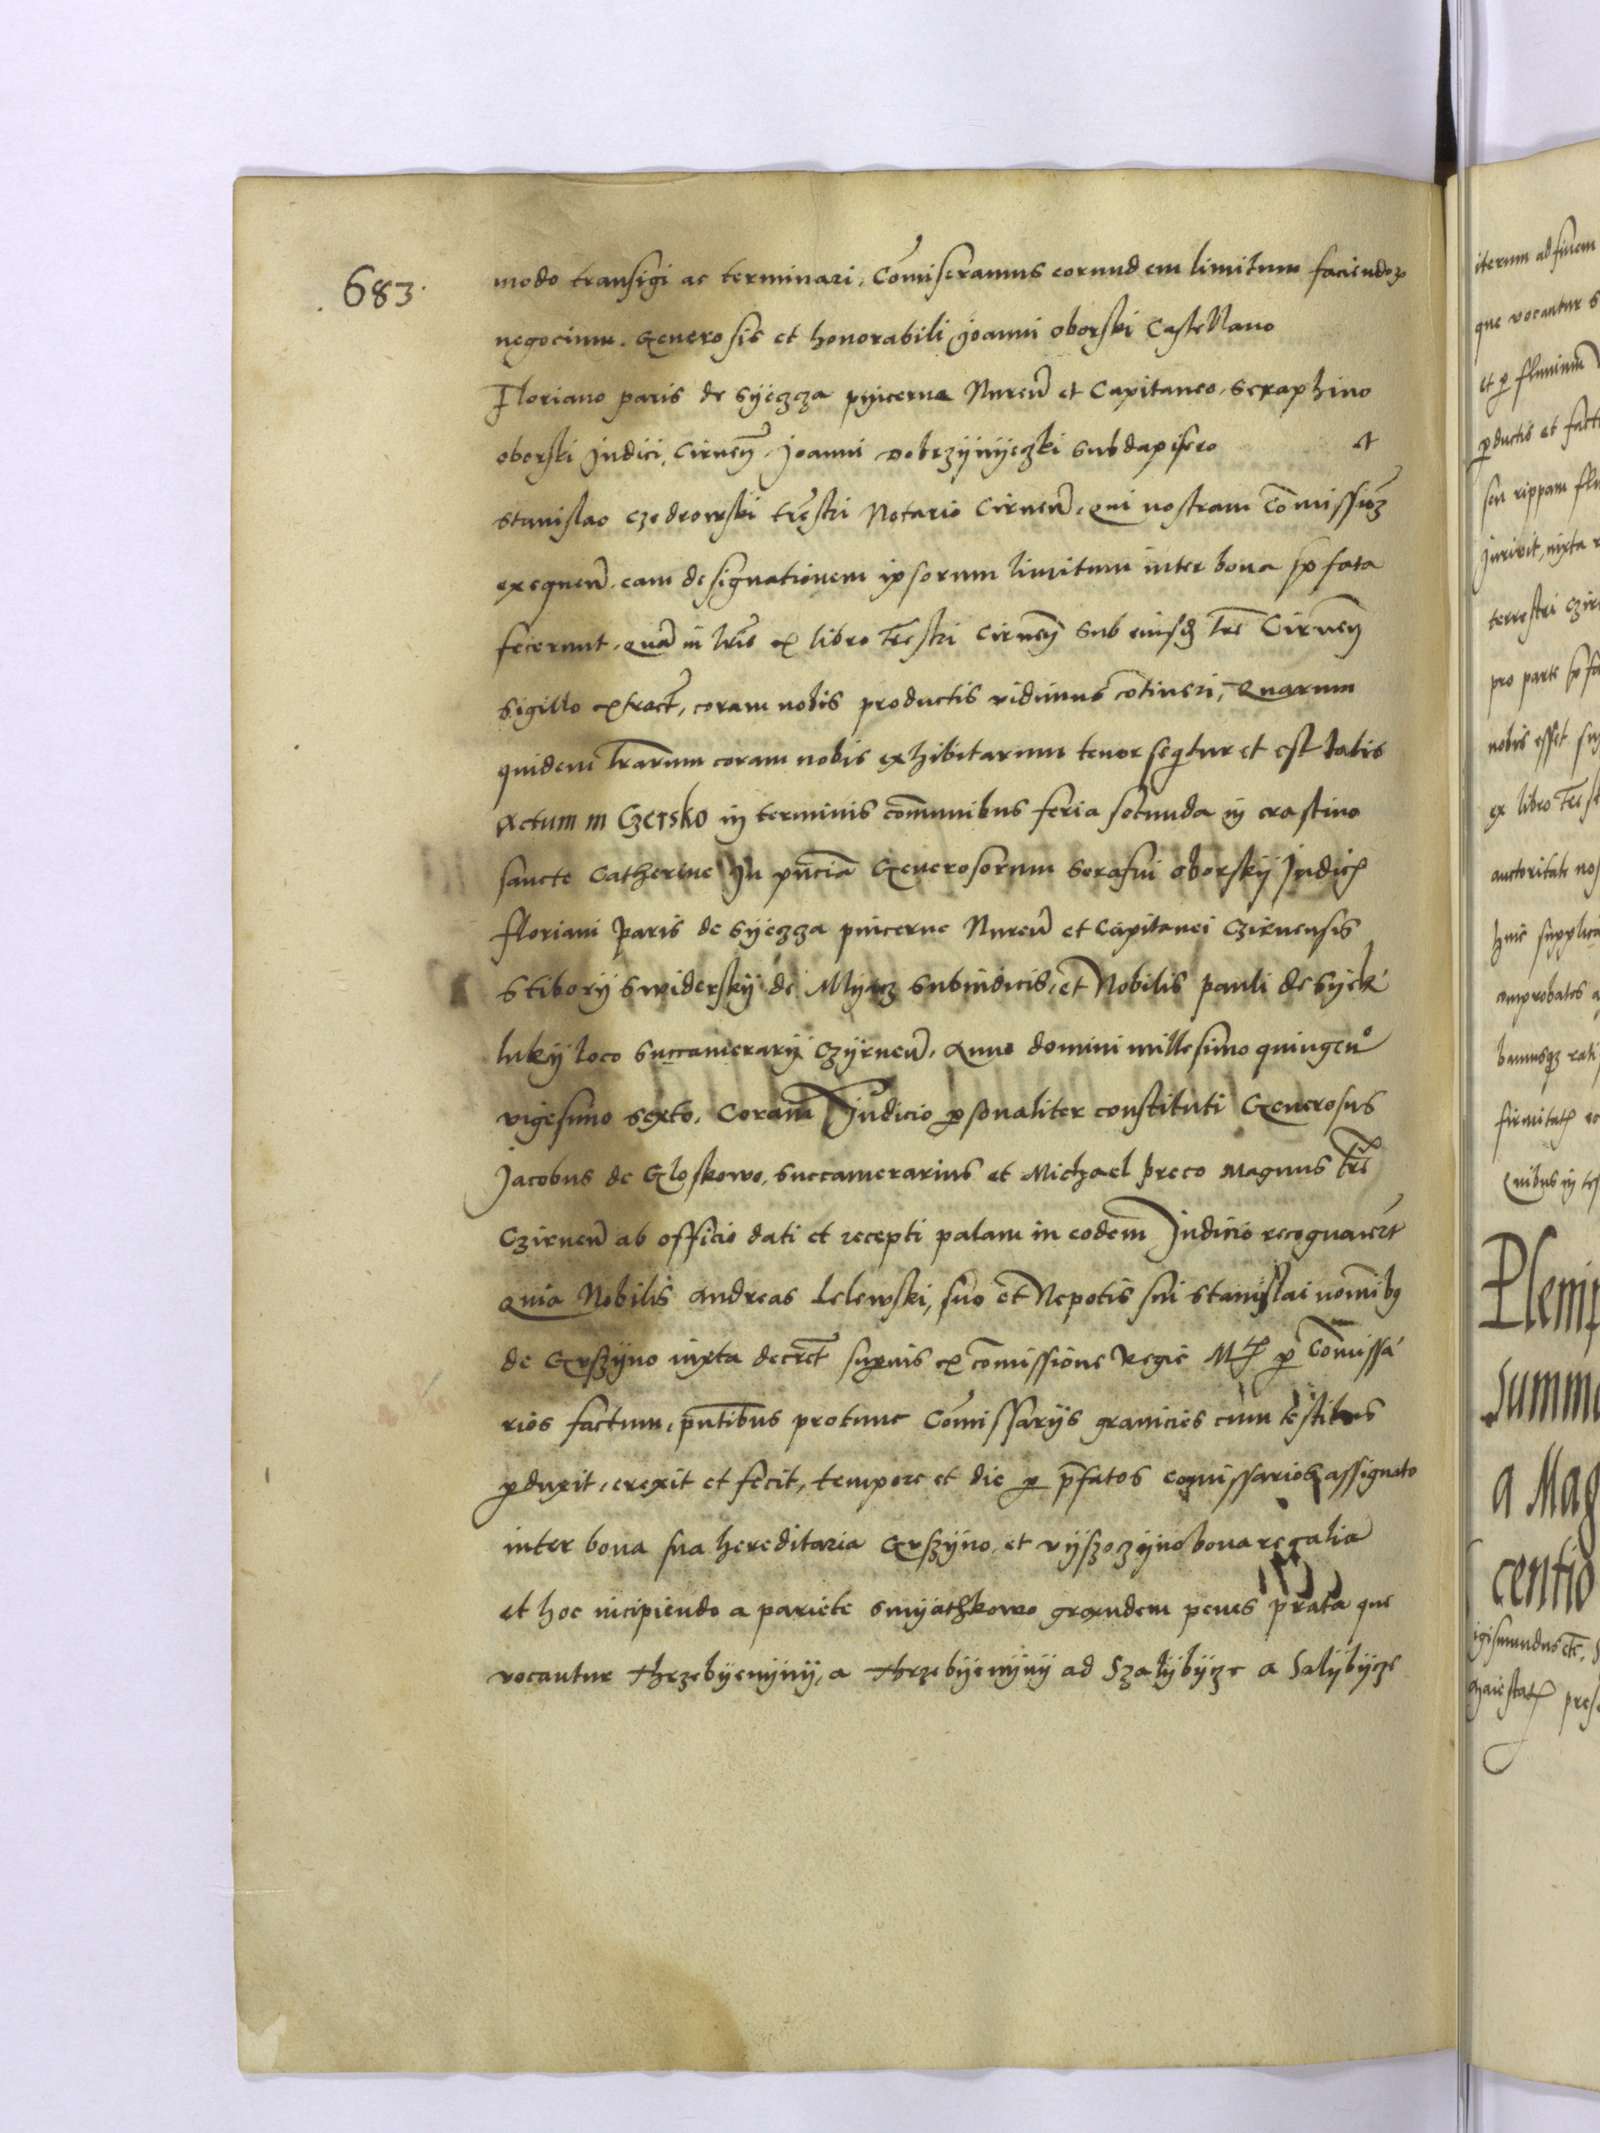 683.
modo transigi ac terminari, Comiseramus eorundem limitum faciendoꝝ
negocium. Generosis et honorabili Joanni oborski Castellano
Floriano paris de Syezza pyncerne Nureñ et Capitaneo, Seraphino
oborski Judici Cirneñ, Joanni Dobrzynyeczki Subdapifero et
Stanislao Czedrowski trestri Notario Cirneñ, qui nostram Comissioз
exequeñ, eam designationem ipsorum limitum inter bona spfata
fecerunt, quã in lris ex libro trestri Cirneñ sub eiusdз tre Cirneñ
Sigillo extract, coram nobis productis vidimus cotineri, Quarum
quidem lrarum coram nobis exhibitarum tenor sequitur et est talis
Actum in Czersko in terminis comunibus feria secunda in crastino
sancte Catherine In pñcia Generosorum Serafini oborskij Judicis
floriani Paris de Syezza pincerne Nureñ et Capitanei Czirnensis
Stiborij Swiderskij de Myacz Subiudicis, et Nobilis pauli de Syek
lukij loco Succamerarij Czyrneñ. Anno domini millesimo quingenº
vigesimo sexto. Coram Judicio psonaliter constituti Generosus
Jacobus de Gloskowo, succamerarius et Michael preco Magnus tre
Czirneñ ab officio dati et recepti palam in eodem Judicio recognauert
Quia Nobilis Andreas Lelewski, suo et Nepotis sui Stanislai nomibꝫ
de Grszyno iuxta decret supius ex comissione Regie Mtis p Comissa
rios factum, pñtibus protunc Comissarijs granicies cum testibus
pduxit, erexit et fecit, tempore et die p pfatos comissarios assignato
inter bona sua hereditaria Grszyno, et vyszozyno bona regalia
et hoc incipiendo a pariete Smyathkowo graxndem penes prata que
vocantur Thrzebyenyny, a Thrzebyenyny ad Szalybycze a Salybycze
iterum ad finem
que vocantur
et p fluuium
pductis et
seu rippam
Juriuit, iuxta
terrestri
pro parte
nobis esset
ex libro
auctoritate
huic
comprobates
bamusqꝫ
Quibus in
Plenip
Summ
a Mag
centio
igismundus etc.